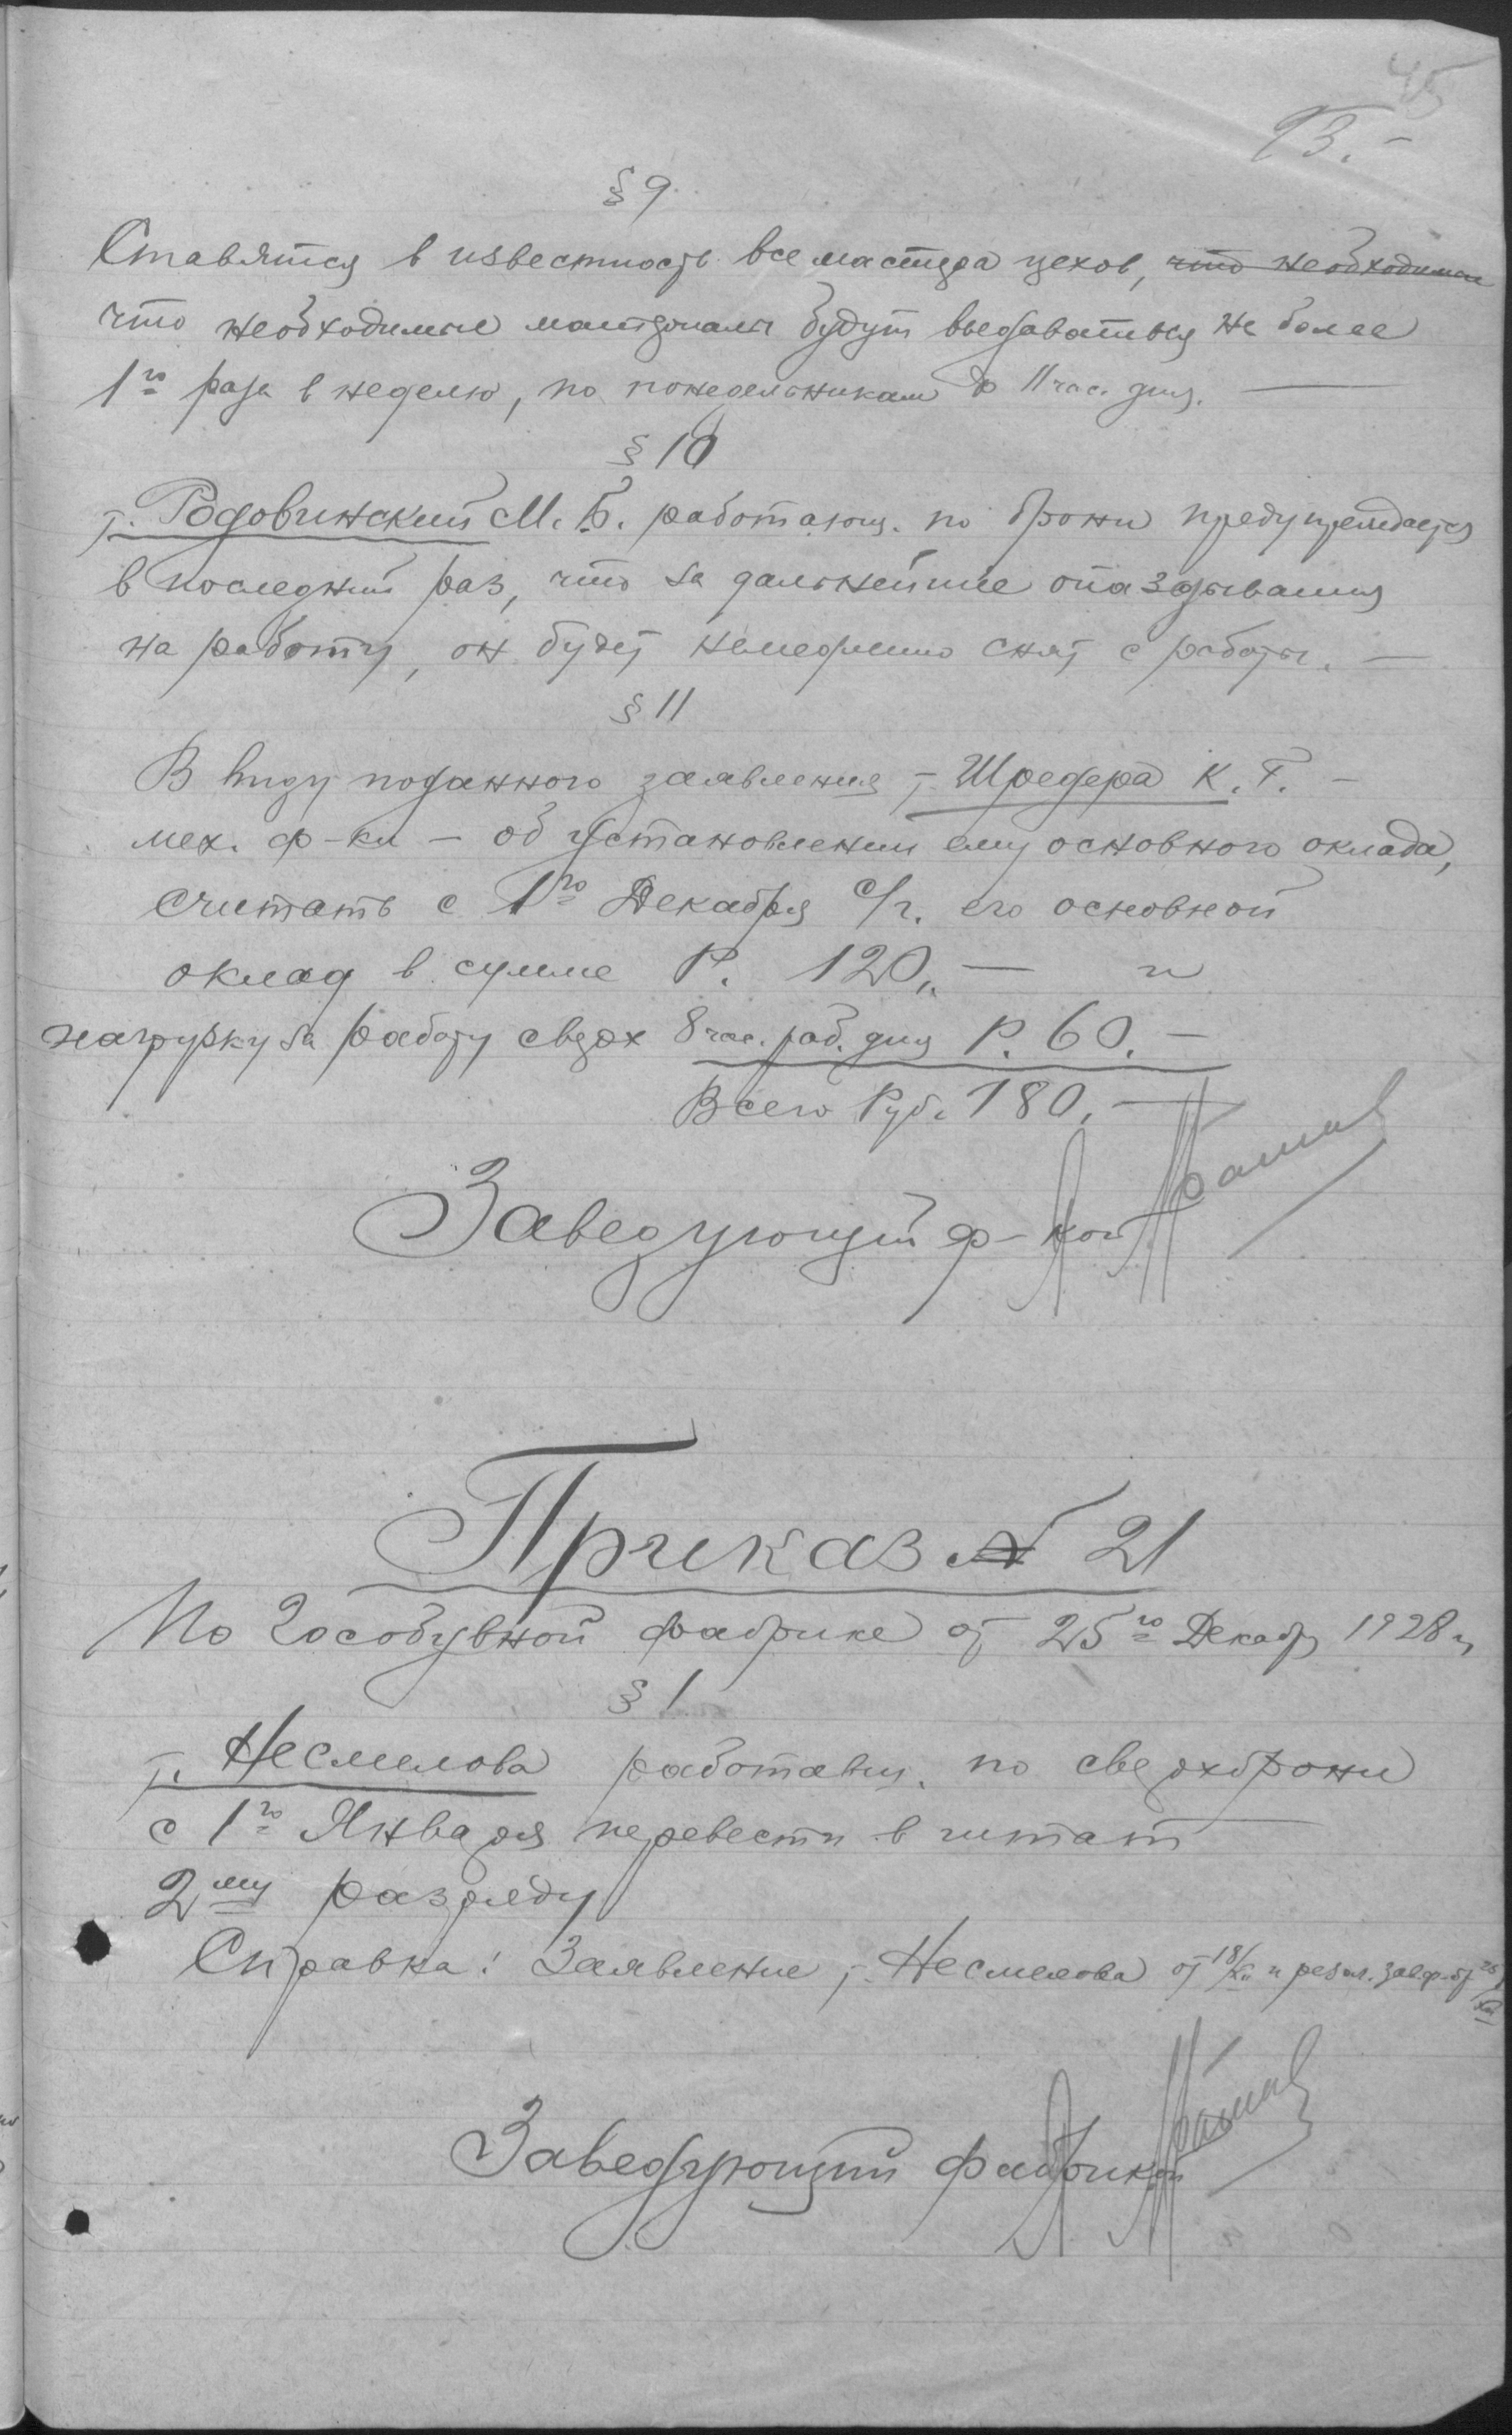 45
93.-
§ 9.
Ставятся в известность все мастера цехов, что необходимые
что необходимые материалы будут выдаваться не более
1го раза в неделю, по понедельникам до 11 час. дня. —
§ 10
т. Родовинский М. Б. работающ. по брони предупреждается
в последний раз, что за дальнейшие опаздывания
на работу, он будет немедленно снят с работы. —
§ 11
В виду поданного заявления т. Шредера К. Г. -
мех. ф-ки - об установлении ему основного оклада,
считать с 1го Декабря с/г. его основной
оклад в сумме Р. 120,— и
нагрузку за работу сверх 8 час. раб. дня Р. 60.-
Всего Руб. 180,—
Заведующий ф-кой
Приказ № 21
По Гособувной фабрике от 25го Декабр 1928 г
§ 1
т. Несмелова работавш. по сверхброни
с 1го Января перевести в штат
2му разряду
Справка: Заявление т. Несмелова от 18/XII и резол. завф. от 25/XII
Заведующий фабрикой